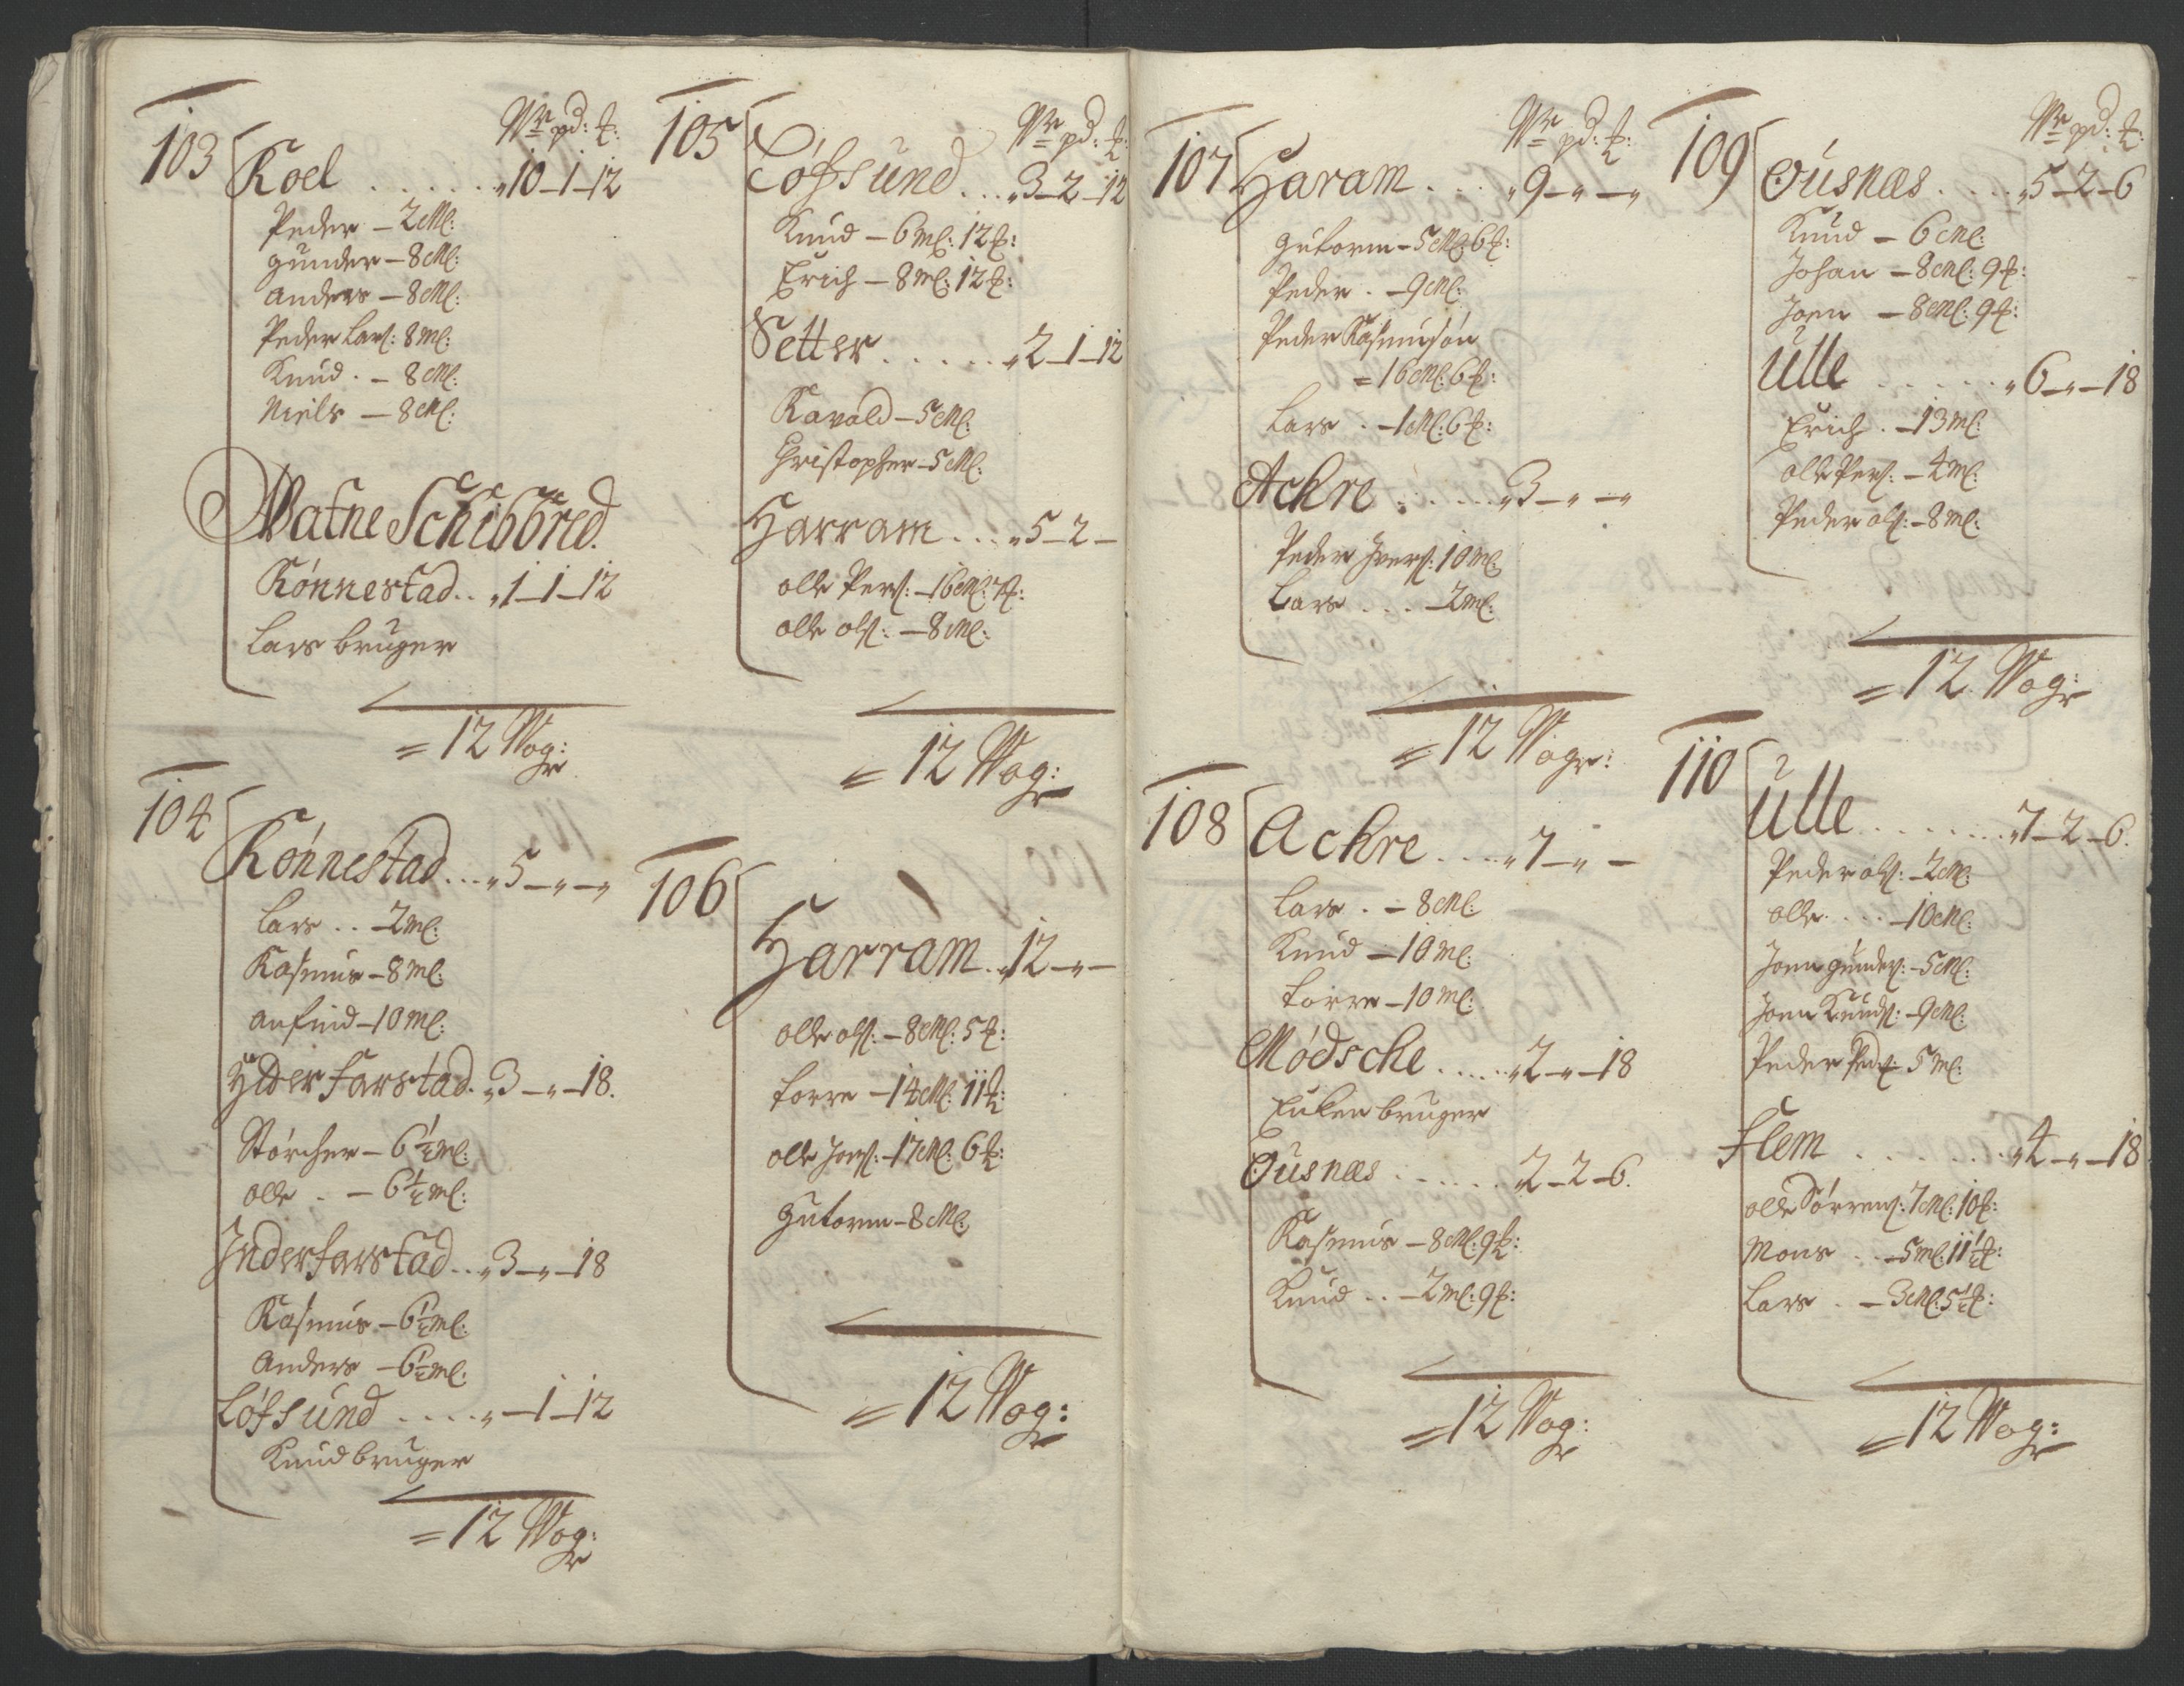 103
Wr pd: ℔:
Roel . . . . . . „10–1–12
Peder – 2 Ml:
Gunder – 8 Ml:
Anders – 8 Ml:
Peder Lars: 8 Ml:
Knud . – 8 Ml:
Niels – 8 Ml:
Watne Schibbred.
Rónnestad . . „1–1–12
Lars bruger
= 12 Wog:r
104
Rónnestad . . . „5–„–„
Lars . . – 2 Ml:
Rasmus – 8 Ml:
Anfind – 10 Ml:
Ytterfarstad . „3–„–18.
Störcher – 6½ Ml:
Olle . – 6½ Ml:
Inderfarstad . . „3–„–18
Rasmus – 6½ Ml:
Anders – 6½ Ml:
Löfsund . . . . „–1–12
Knud bruger
= 12 Wog:r
105
Wr pd: ℔:
Löfsund . . . „3–2–12
Knud – 6 Ml: 12 ℔:
Erich – 8 Ml: 12 ℔:
Setter . . . . . „2–1–12
Ravald – 5 Ml:
Christopher – 5 Ml:
Harram . . . „5–2–
Olle Pers: – 16 Ml: 7 ℔:
Olle Ols: – 8 Ml:
= 12 Wog:r
106
Harram . . „12–„–
Olle Ols: – 8 Ml: 5 ℔:
Torre – 14 Ml: 11 ℔:
Olle Jons: – 17 Ml: 6 ℔:
Gutorm – 8 Ml:
= 12 Wog:r
107
Wr pd: ℔:
Haram . . . „9–„–„
Gutorm – 5 Ml: 6 ℔:
Peder . – 9 Ml:
Peder Rasmusón
= 16 Ml: 6 ℔:
Lars . – 1 Ml: 6 ℔:
Ackre . . . . . „3–„–„
Peder Ivers: 10 Ml:
Lars . . . – 2 Ml:
= 12 Wogr:
108
Ackre . . . . „7–„–
Lars . – 8 Ml:
Knud – 10 Ml:
Torre – 10 Ml:
Módsche . . . . . „2–„–18
Enken bruger
Ousnæs . . . . . . „2–2–6.
Rasmus – 8 Ml: 9 ℔:
Knud . . – 2 Ml: 9 ℔:
= 12 Wog:r
109
Wr pd: ℔:
Ousnæs . . . . „5–2–6
Knud – 6 Ml:
Johan – 8 Ml: 9 ℔:
Joen – 8 Ml: 9 ℔:
Ulle . . . . . . „6–„–18
Erich . – 13 Ml:
Olle Pers: – 4 Ml:
Peder Ols: – 8 Ml:
= 12 Wog:r
110
Ulle . . . . . . . „7–2–6.
Peder Ols: – 2 Ml:
Olle . . . – 10 Ml:
Joen Gunders: – 5 Ml:
Joen Knuds: – 9 Ml:
Peder Peds: 5 Ml:
Flem . . . . . . . „4–„–18
Olle Sörrens: 7 Ml: 10 ℔:
Mons . . – 5 Ml: 11½ ℔:
Lars . – 3 Ml: 5½ ℔:
= 12 Wog:r